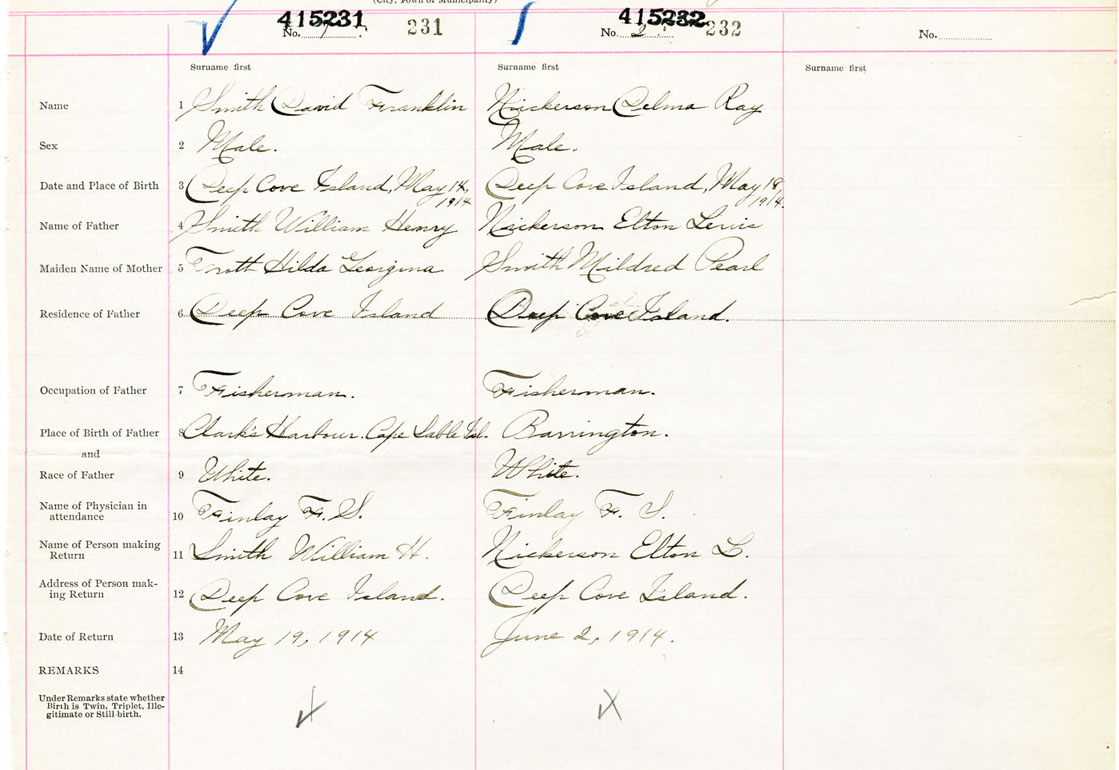 (City, Town or Municipality)
415231 415232
No. 1 231 No. 2 232 No.
Surname first Surname first Surname first
Name 1 Smith David Franklin Nickerson Delma Ray
Sex 2 Male. Male.
Date and Place of Birth 3 Deep Cove Island, May 14, 1914 Deep Cove Island, May 18, 1914.
Name of Father 4 Smith William Henry Nickerson Elton Lewis
Maiden Name of Mother 5 Hilda Georgina Smith Mildred Pearl
Residence of Father 6 Deep Cove Island Deep Cove Island.
Occupation of Father 7 Fisherman. Fisherman.
Place of Birth of Father 8 Clark's Harbour. Cape Sable Isl. Barrington.
and
Race of Father 9 White. White.
Name of Physician in
attendance 10 Finlay F. S. Finlay F. S.
Name of Person making
Return 11 Smith William H. Nickerson Elton L.
Address of Person mak-
ing Return 12 Deep Cove Island. Deep Cove Island.
Date of Return 13 May 19, 1914 June 2, 1914.
REMARKS 14
Under Remarks state whether
Birth is Twin, Triplet, Ille-
gitimate or Still-birth.